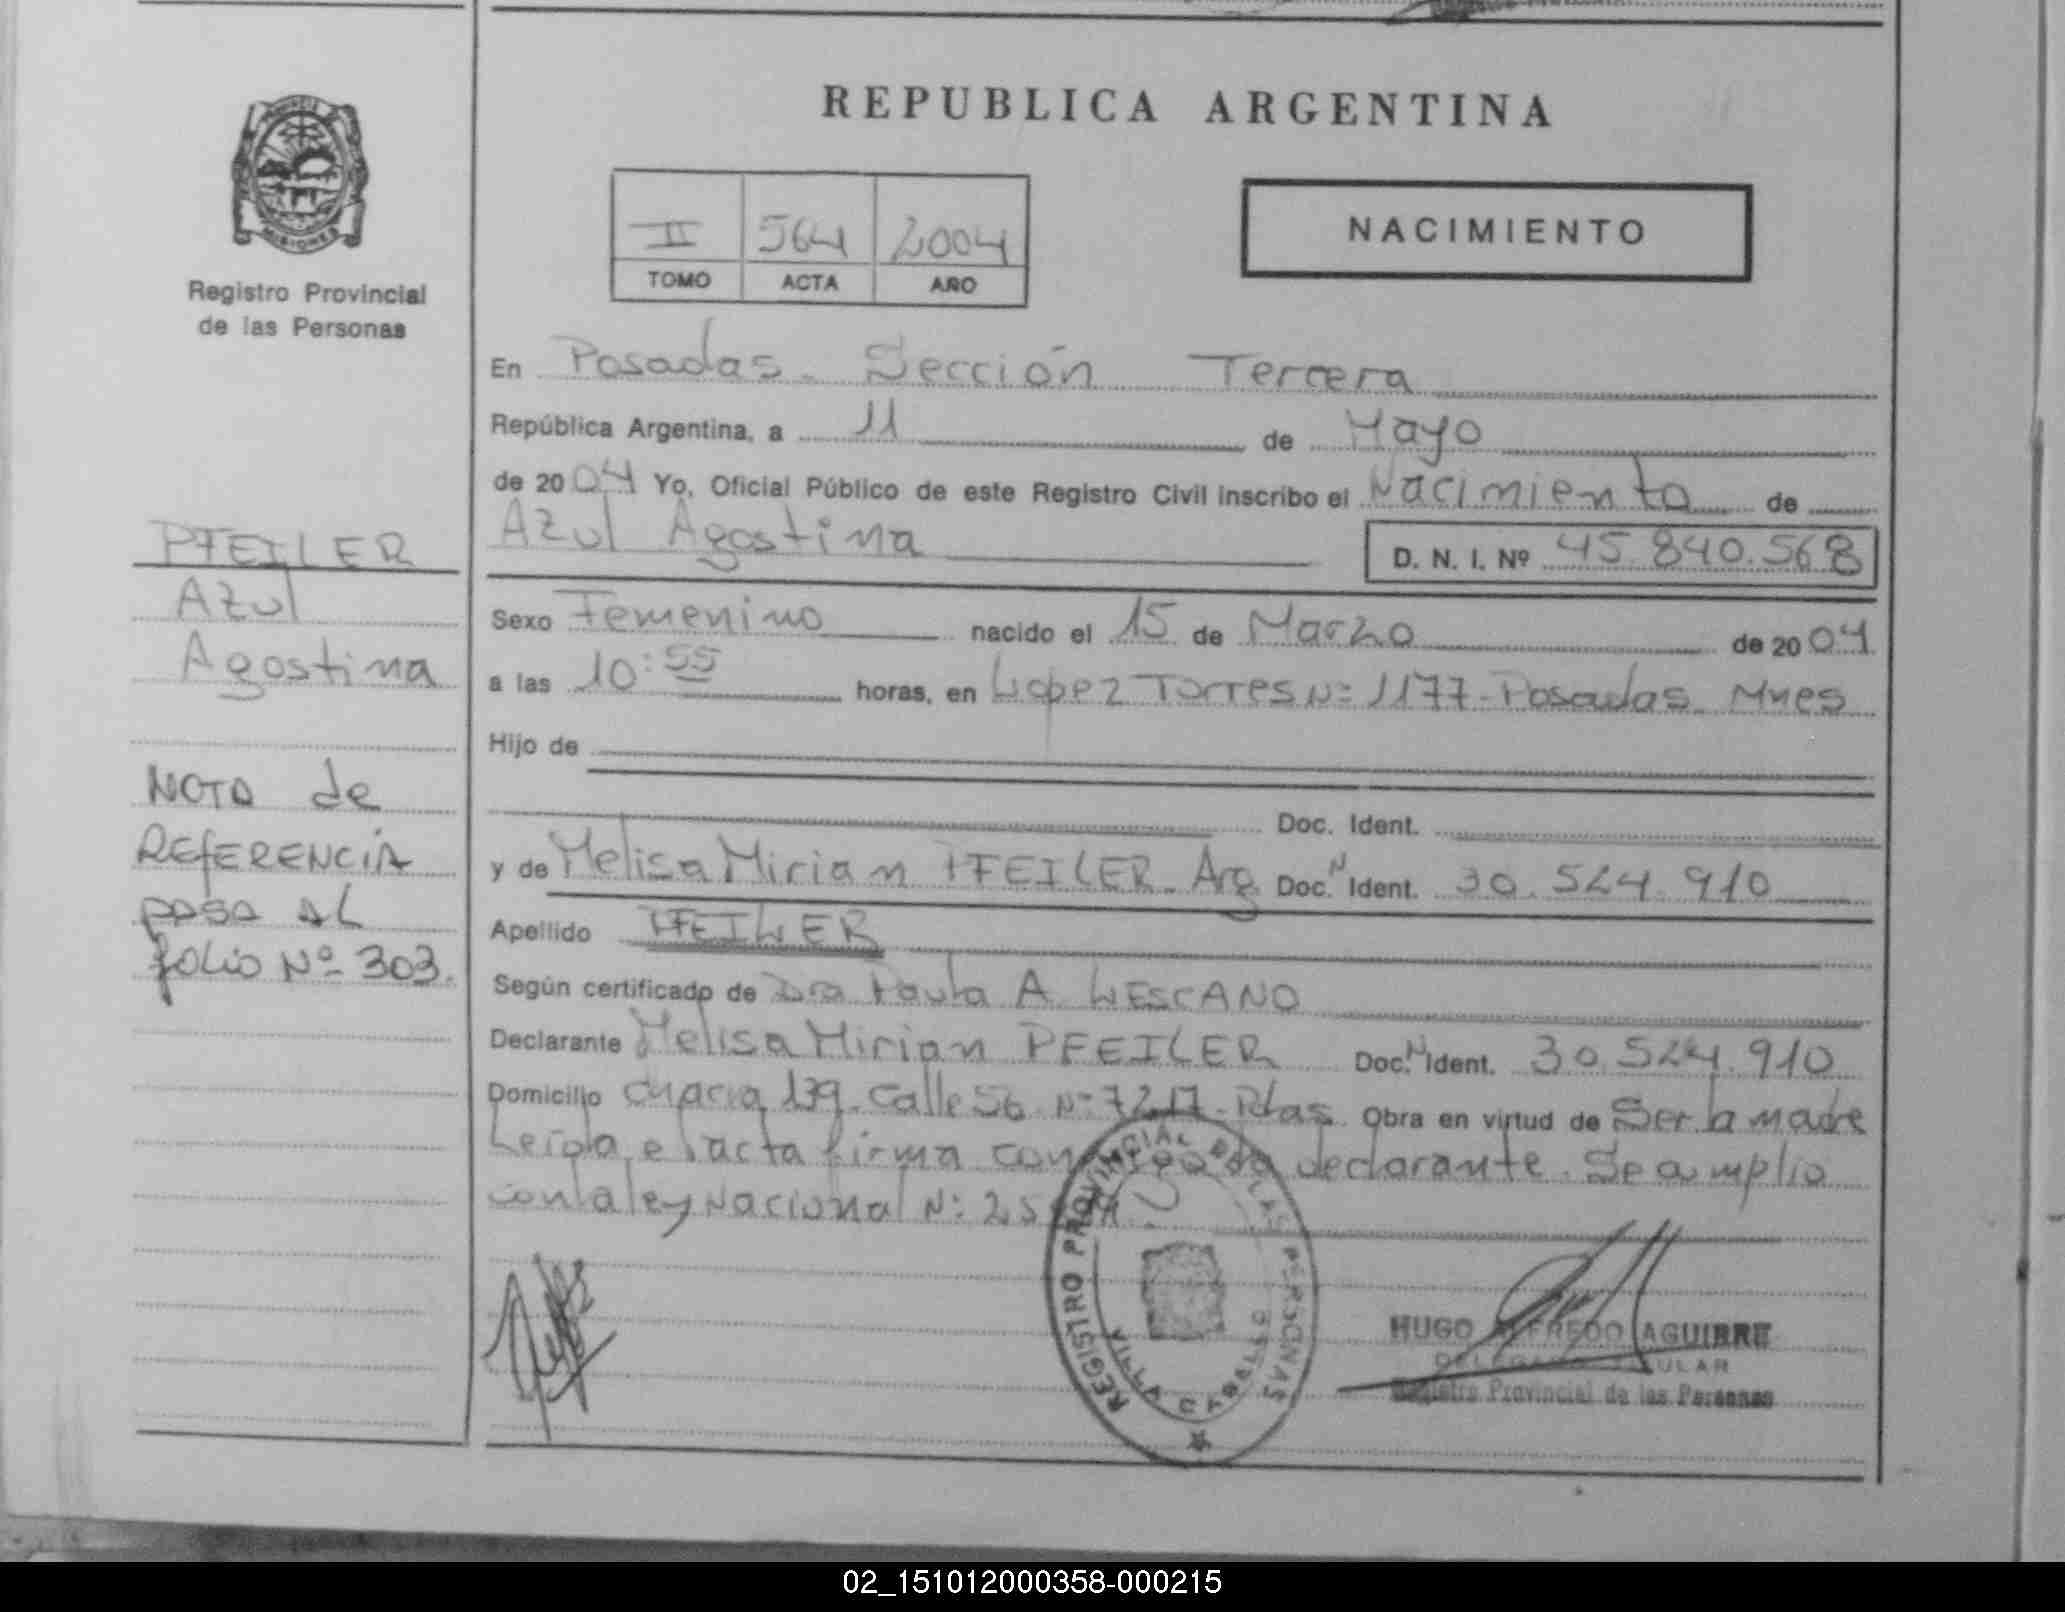 REPUBLICA ARGENTINA
MISIONES
Registro Provincial
de las Personas
II 564 2004
TOMO ACTA AÑO
NACIMIENTO
En Posadas - Sección Tercera
República Argentina, a 11 de Mayo
de 2004 Yo, Oficial Público de este Registro Civil inscribo el Nacimiento de
Azul Agostina D. N. I. Nº 45.840.568
Sexo Femenino nacido el 15 de Marzo de 2004
a las 10:55 horas, en Lopez Torres Nº 1177-Posadas. Mnes
Hijo de
Doc. Ident.
y de Melisa Mirian PFEILER - Arg. Doc. N Ident. 30.524.910
Apellido PFEILER
Según certificado de Dra Paula A. LESCANO
Declarante Melisa Mirian PFEILER Doc. N Ident. 30.524.910
Domicilio Chacra 139. Calle 56 Nº Pdas. Obra en virtud de Ser la madre
Leida el acta firma declarante. Se amplio
con la ley Nacional Nº:
PFEILER
Azul
Agostina
NOTA de
REfERENCIA
PASA AL
folio Nº 303.
REGISTRO PROVINCIAL DE LAS PERSONAS
VILLA
HUGO ALFREDO AGUIRRE
DELEGADO TITULAR
Registro Provincial de las Personas
02_151012000358-000215